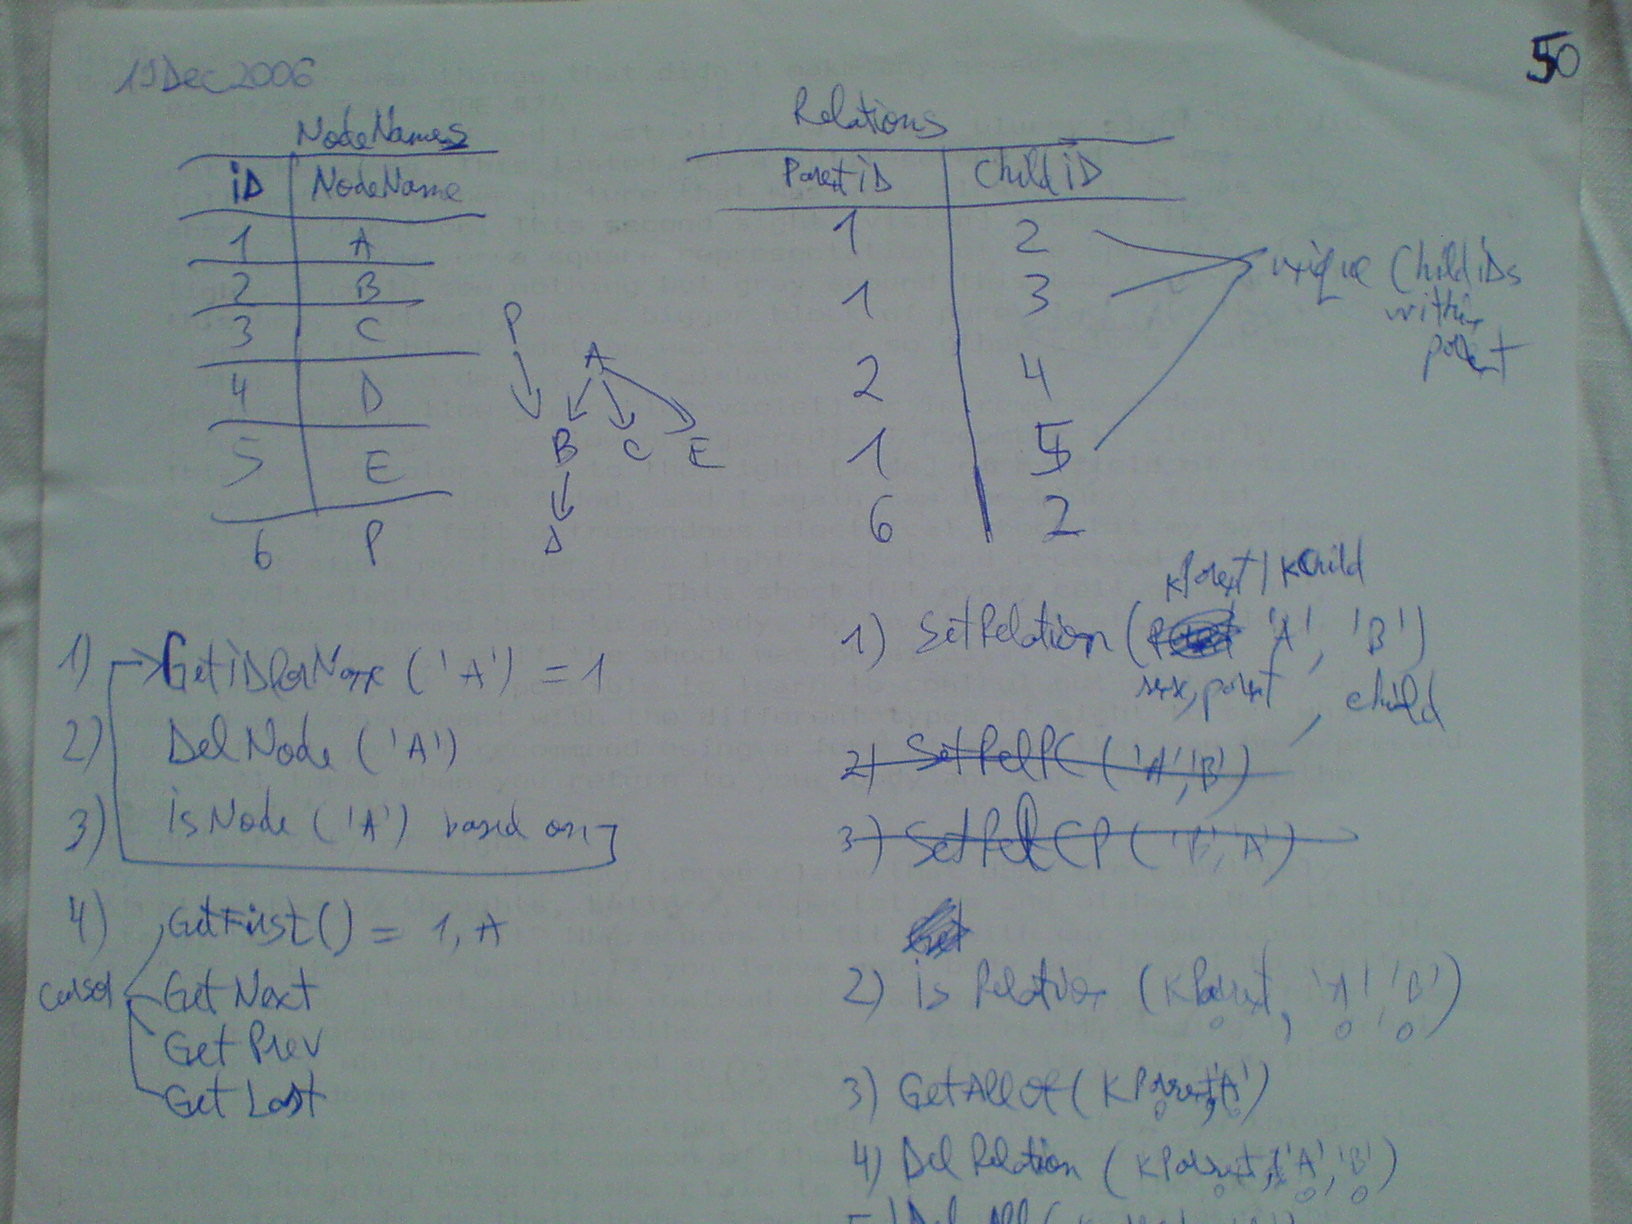 19Dec2006
50
NodeNames
iD NodeName
1 A
2 B
3 C
4 D
5 E
6 P
P
A
B C E
D
Relations
ParentiD ChildiD
1 2
1 3
2 4
1 5
6 2
unique ChildiDs
within
parent
1) GetiDforName ('A') = 1
2) DelNode ('A')
3) isNode ('A') based on
4) GetFirst() = 1, A
cursor
GetNext
GetPrev
GetLast
kParent | kChild
1) SetRelation ( 'A', 'B')
parent, child
2) SetRelPC ('A','B')
3) SetRelCP ('B','A')
Get
2) isRelation (kParent, 'A' 'B')
3) GetAllOf (kParent,'A')
4) DelRelation (kParent, 'A', 'B')
5) DelAll (